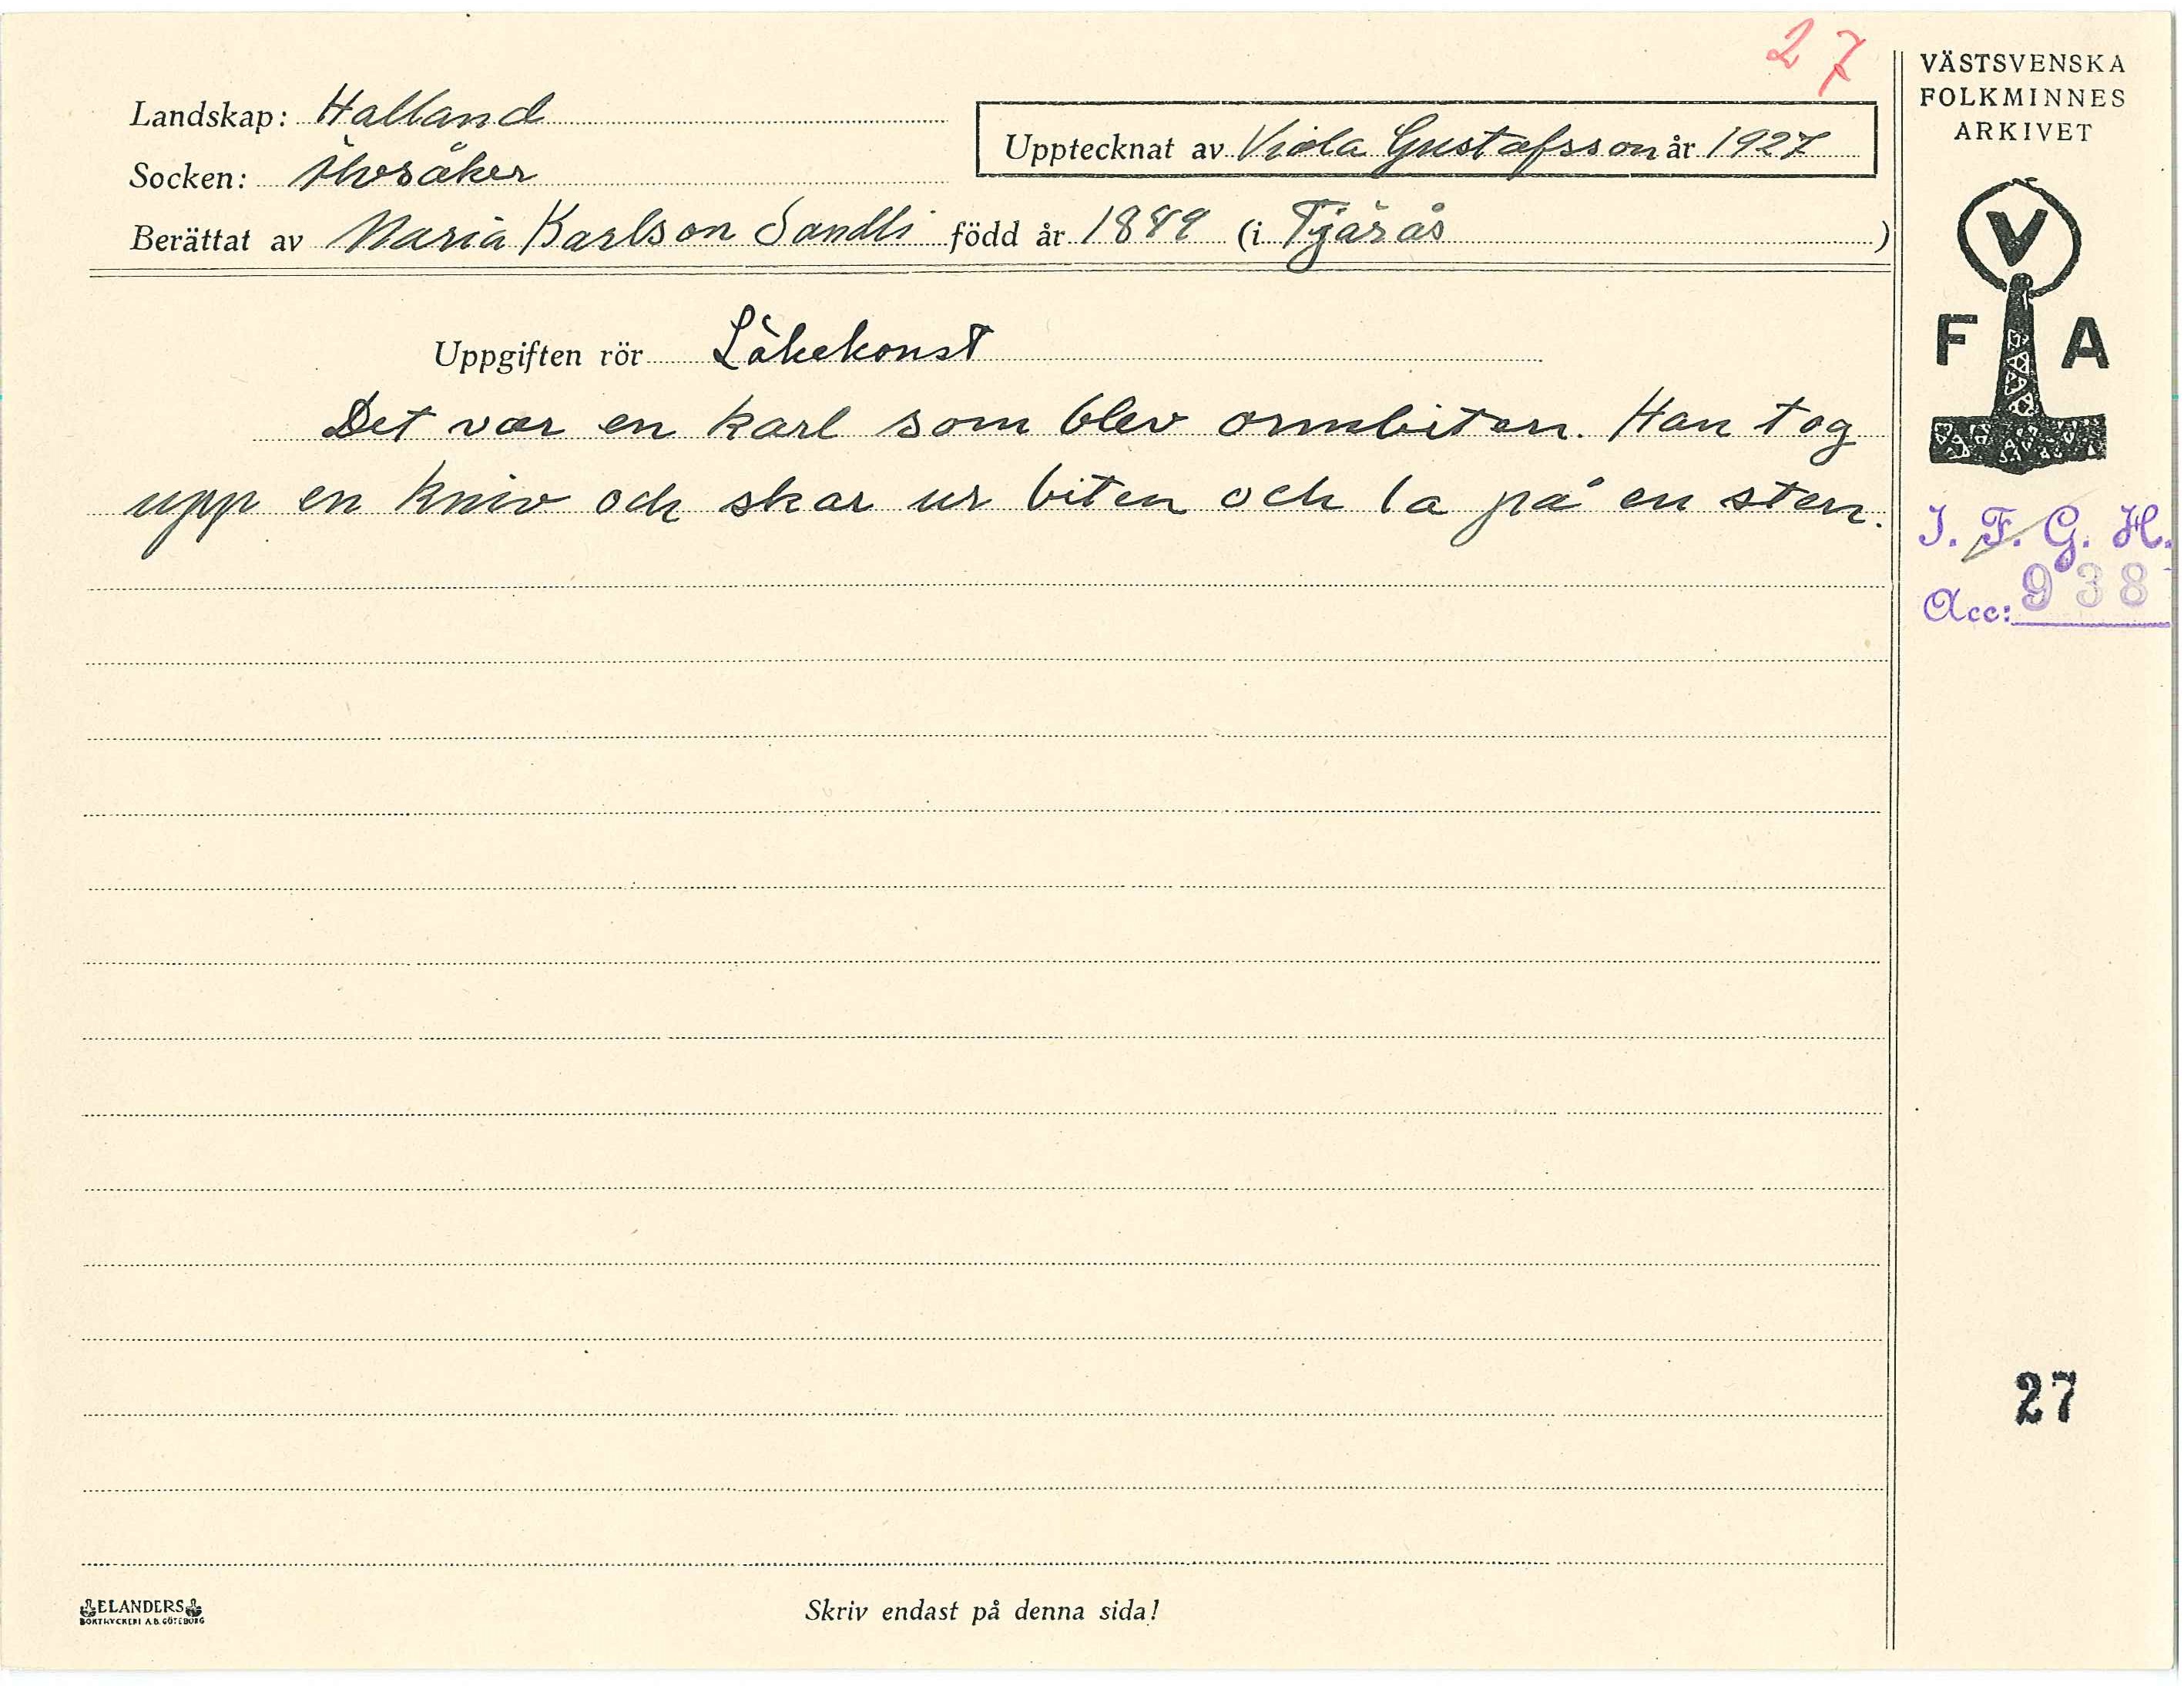 27
VÄSTSVENSKA
FOLKMINNES
ARKIVET
Landskap: Halland
Upptecknat av Viola Gustafsson år 1927
Socken: Älvsåker
Berättat av Maria Karlson Sandli född år 1849 (i Tjärås)
V
F A
Uppgiften rör Läkekonst
Det var en karl som blev ormbiten. Han tog
upp en kniv och skar ur biten och la på en sten.
I. F. G. H.
Acc: 938
27
ELANDERS
BOKTRYCKERI A.B. GÖTEBORG
Skriv endast på denna sida!